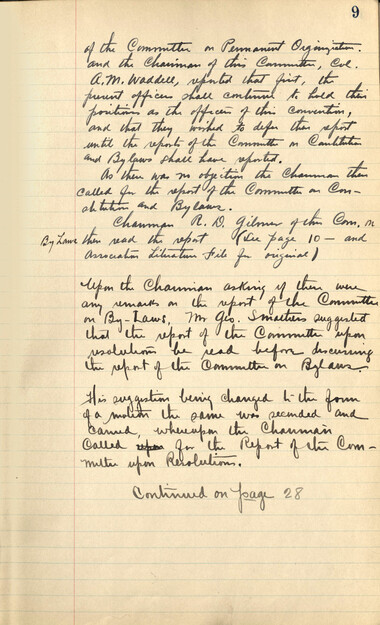 9
of the Committee on Permanent Organization
and the Chairman of this Committee, Col.
A. M. Waddell, reported that first, the
present officers shall continue to hold their
positions as the officers of this convention,
and that they wished to defer their report
until the reports of the Committee on Constitution
and Bylaws shall have reported.
As there was no objection the Chairman then
called for the report of the Committee on Con-
stitution and Bylaws.
Chairman R. D. Gilmer of the Com. on
By Laws then read the report (See page 10 — and
Association Literature File for original)
Upon the Chairman asking if there were
any remarks on the report of the Committee
on By-Laws, Mr Geo. Smathers suggested
that the report of the Committee upon
resolutions be read before discussing
the report of the Committee on Bylaws.
His suggestion being changed to the form
of a motion the same was seconded and
carried, whereupon the Chairman
called upon for the Report of the Com-
mittee upon Resolutions.
Continued on page 28